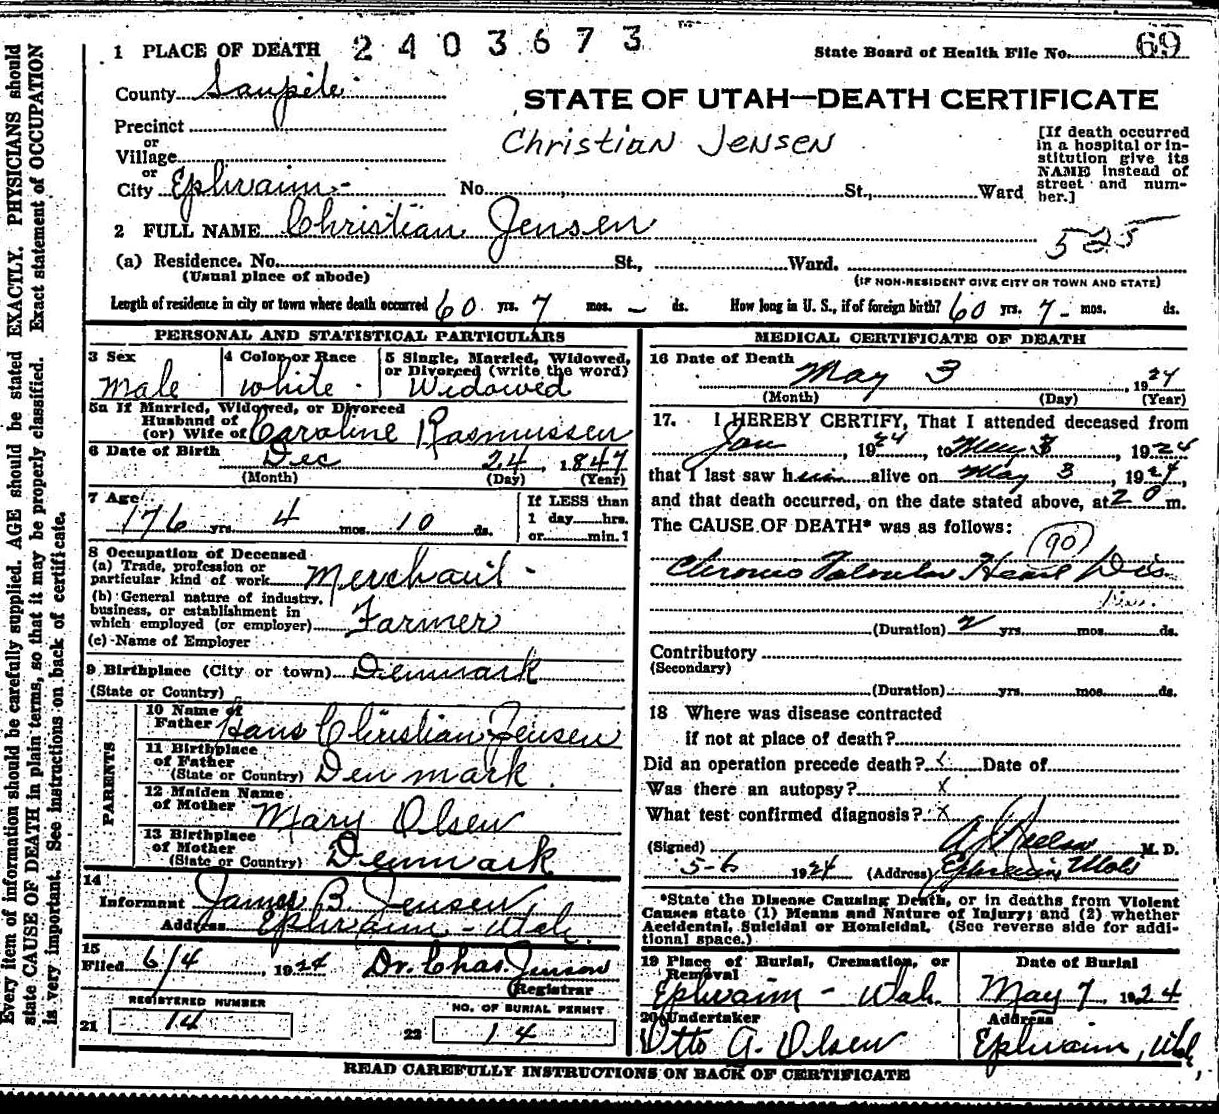 1 PLACE OF DEATH 2403673 State Board of Health File No. 69
County Sanpete
STATE OF UTAH—DEATH CERTIFICATE
Precinct
or
Village
Christian Jensen
[If death occurred in a hospital or in-
stitution give its
NAME instead of
street and num-
ber.]
or
City Ephraim - No. St., Ward
2 FULL NAME Christian Jensen
525
(a) Residence. No. St., Ward.
(Usual place of abode) (IF NON-RESIDENT GIVE CITY OR TOWN AND STATE)
Length of residence in city or town where death occurred 60 yrs. 7 mos. – ds. How long in U. S., if of foreign birth? 60 yrs. 7 - mos. ds.
PERSONAL AND STATISTICAL PARTICULARS
3 Sex Male
4 Color or Race White
5 Single, Married, Widowed,
or Divorced (write the word)
Widowed
5a If Married, Widowed, or Divorced
Husband of
(or) Wife of Caroline Rasmussen
6 Date of Birth Dec 24, 1847
(Month) (Day) (Year)
7 Age 76 yrs. 4 mos. 10 ds.
If LESS than
1 day hrs.
or min.?
8 Occupation of Deceased
(a) Trade, profession or
particular kind of work Merchant -
(b) General nature of industry,
business, or establishment in
which employed (or employer) Farmer
(c) Name of Employer
9 Birthplace (City or town) Denmark
(State or Country)
PARENTS
10 Name of
Father Hans Christian Jensen
11 Birthplace
of Father
(State or Country) Denmark
12 Maiden Name
of Mother Mary Olsen
13 Birthplace
of Mother
(State or Country) Denmark
14
Informant James B. Jensen
Address Ephraim - Utah.
15
Filed 6/4, 1924 Dr. Chas Jenson
Registrar
REGISTERED NUMBER
21 14
NO. OF BURIAL PERMIT
22 14
MEDICAL CERTIFICATE OF DEATH
16 Date of Death May 3, 1924
(Month) (Day) (Year)
17. I HEREBY CERTIFY, That I attended deceased from
Jan 1924, to May 3, 1924
that I last saw him alive on May 3, 1924,
and that death occurred, on the date stated above, at m.
The CAUSE OF DEATH* was as follows:
90
Chronic Valvular Heart Dis
(Duration) 2 yrs. mos. ds.
Contributory
(Secondary)
(Duration) yrs. mos. ds.
18 Where was disease contracted
if not at place of death?
Did an operation precede death? x Date of
Was there an autopsy? x
What test confirmed diagnosis? x
(Signed) M. D.
5-6 1924 (Address) Ephraim, Utah
*State the Disease Causing Death, or in deaths from Violent
Causes state (1) Means and Nature of Injury; and (2) whether
Accidental, Suicidal or Homicidal. (See reverse side for addi-
tional space.)
19 Place of Burial, Cremation, or
Removal
Ephraim - Utah.
Date of Burial
May 7, 1924
20 Undertaker
Otto A. Olsen
Address
Ephraim, Utah,
READ CAREFULLY INSTRUCTIONS ON BACK OF CERTIFICATE
Every item of information should be carefully supplied. AGE should be stated EXACTLY. PHYSICIANS should
state CAUSE OF DEATH in plain terms, so that it may be properly classified. Exact statement of OCCUPATION
is very important. See instructions on back of certificate.